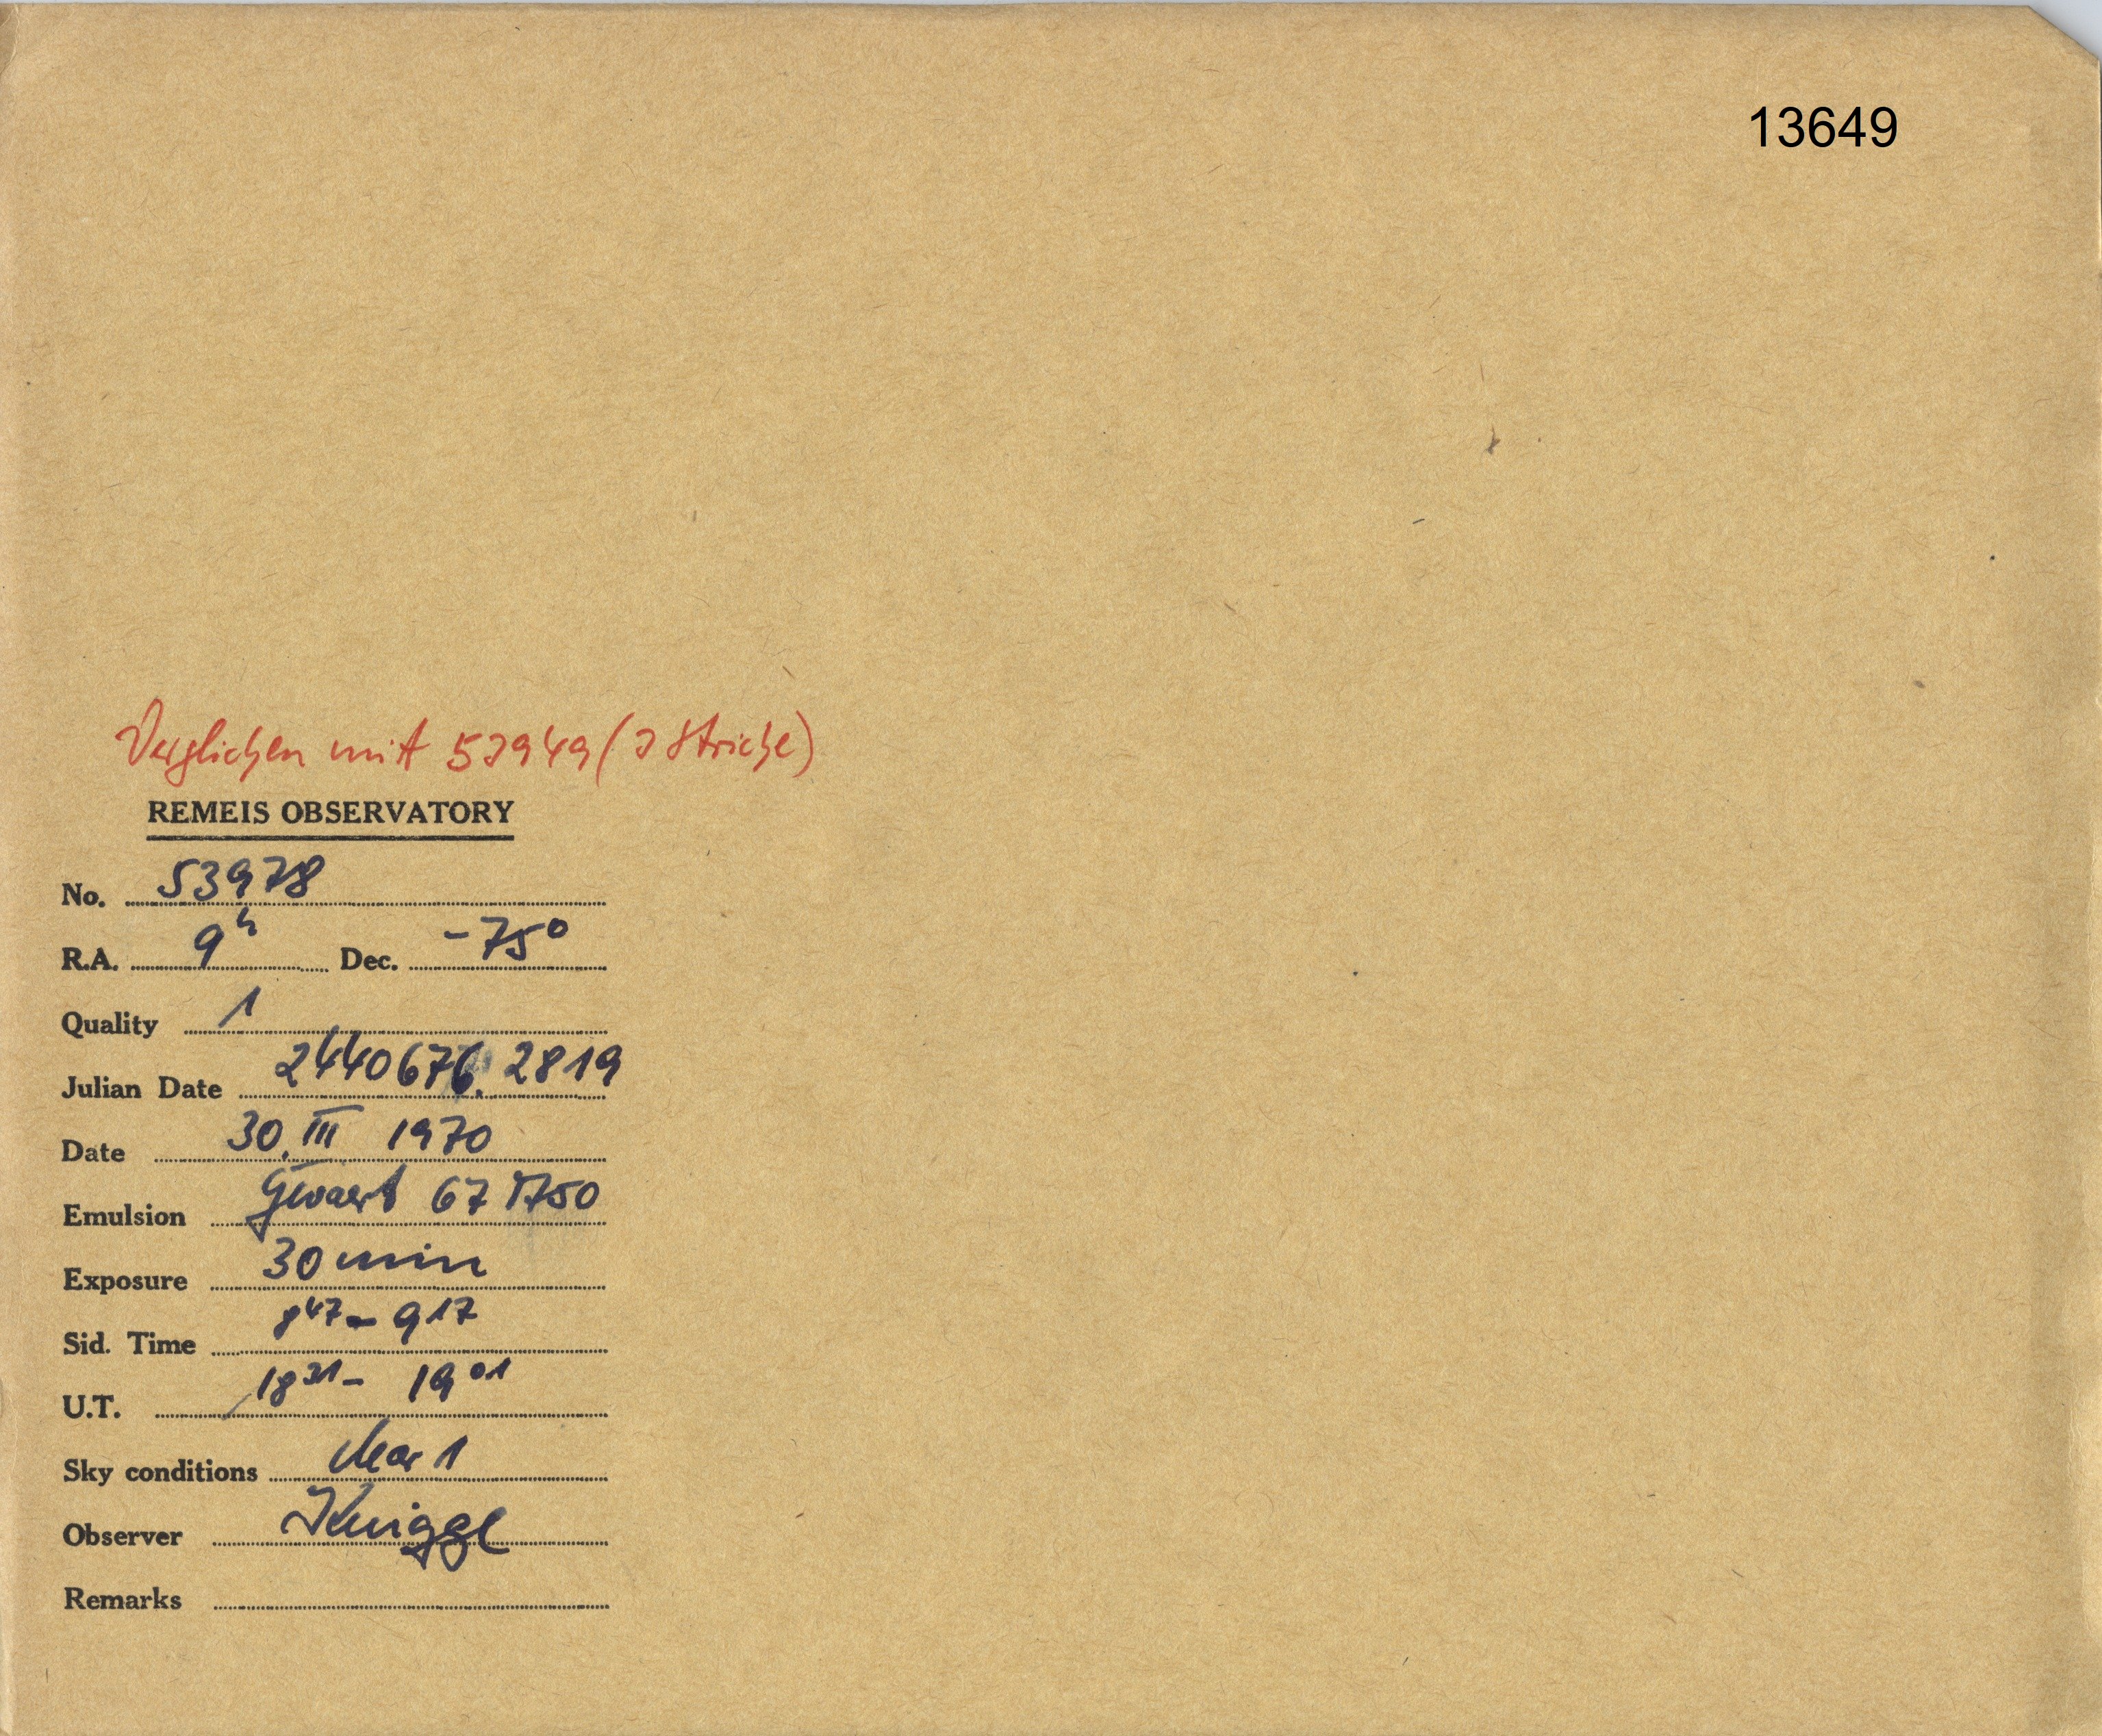 13649
Verglichen mit 53949 (3 Striche)
REMEIS OBSERVATORY
No. 53978
R.A. 9h Dec. -75°
Quality 1
Julian Date 2440676.2819
Date 30. III 1970
Emulsion Gevaert 67 1750
Exposure 30 min
Sid. Time 8 47 - 9 17
U.T. 18 31 - 19 01
Sky conditions clear 1
Observer Knigge
Remarks